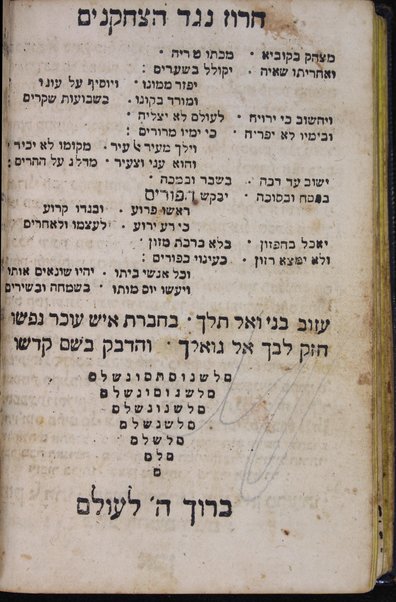 חרוז נגד הצחקנים
מצחק בקוביא · מכתו טריה ·
ואחריתו שאיה · יקולל בשערים :
יפזר ממונו · ויוסיף על עונו
ומורד בקונו · בשבועות שקרים
ויחשוב כי ירויח · לעולם לא יצליח ·
ובימיו לא יפריח · כי ימיו מרורים :
וילך מעיר לעיר · מקומו לא יכיר
והוא עני וצעיר · מדלג על ההרים :
ישוב עד דכה · בשבר ובמכה ·
בסבך ובסוכה · יבקש
ראשו פרוע · ובגדו קרוע
כי רע ירוע · לעצמו ולאחרים
יאכל בחפזון · בלא ברכת מזון ·
ולא ימצא רזון · בעינוי כפורים :
וכל אנשי ביתו · יהיו שונאים אותו
ויעשו יום מותו · בשמחה ובשירים
עזוב בני ואל תלך · בחברת איש עוכר נפשו
חזק לבך אל גואלך · והדבק בשם קדשו
ם ל ש נ ו ם ת ם ו נ ש ל ם
ם ל ש נ ו ם ו נ ש ל ם
ם ל ש נ ו נ ש ל ם
ם ל ש נ ש ל ם
ם ל ש ל ם
ם ל ם
ם
ברוך ה' לעולם